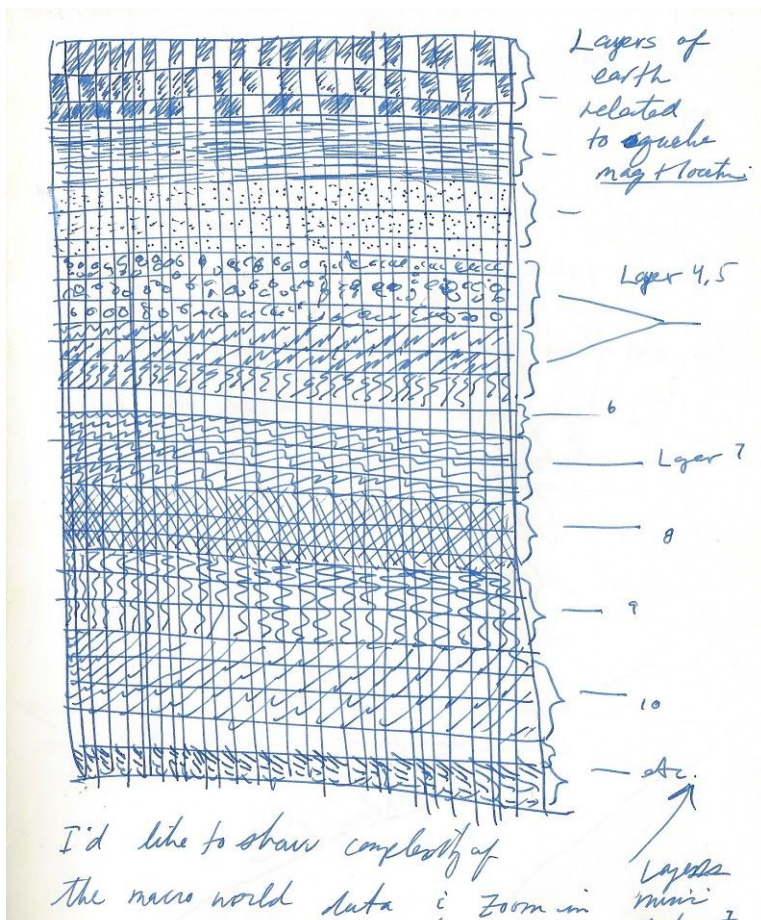 Layers of
earth
related
to quake
mag + locatin
Layer 4,5
6
Layer 7
8
9
10
etc.
I'd like to show complexity of
the macro world data & Zoom in
Layers
mini